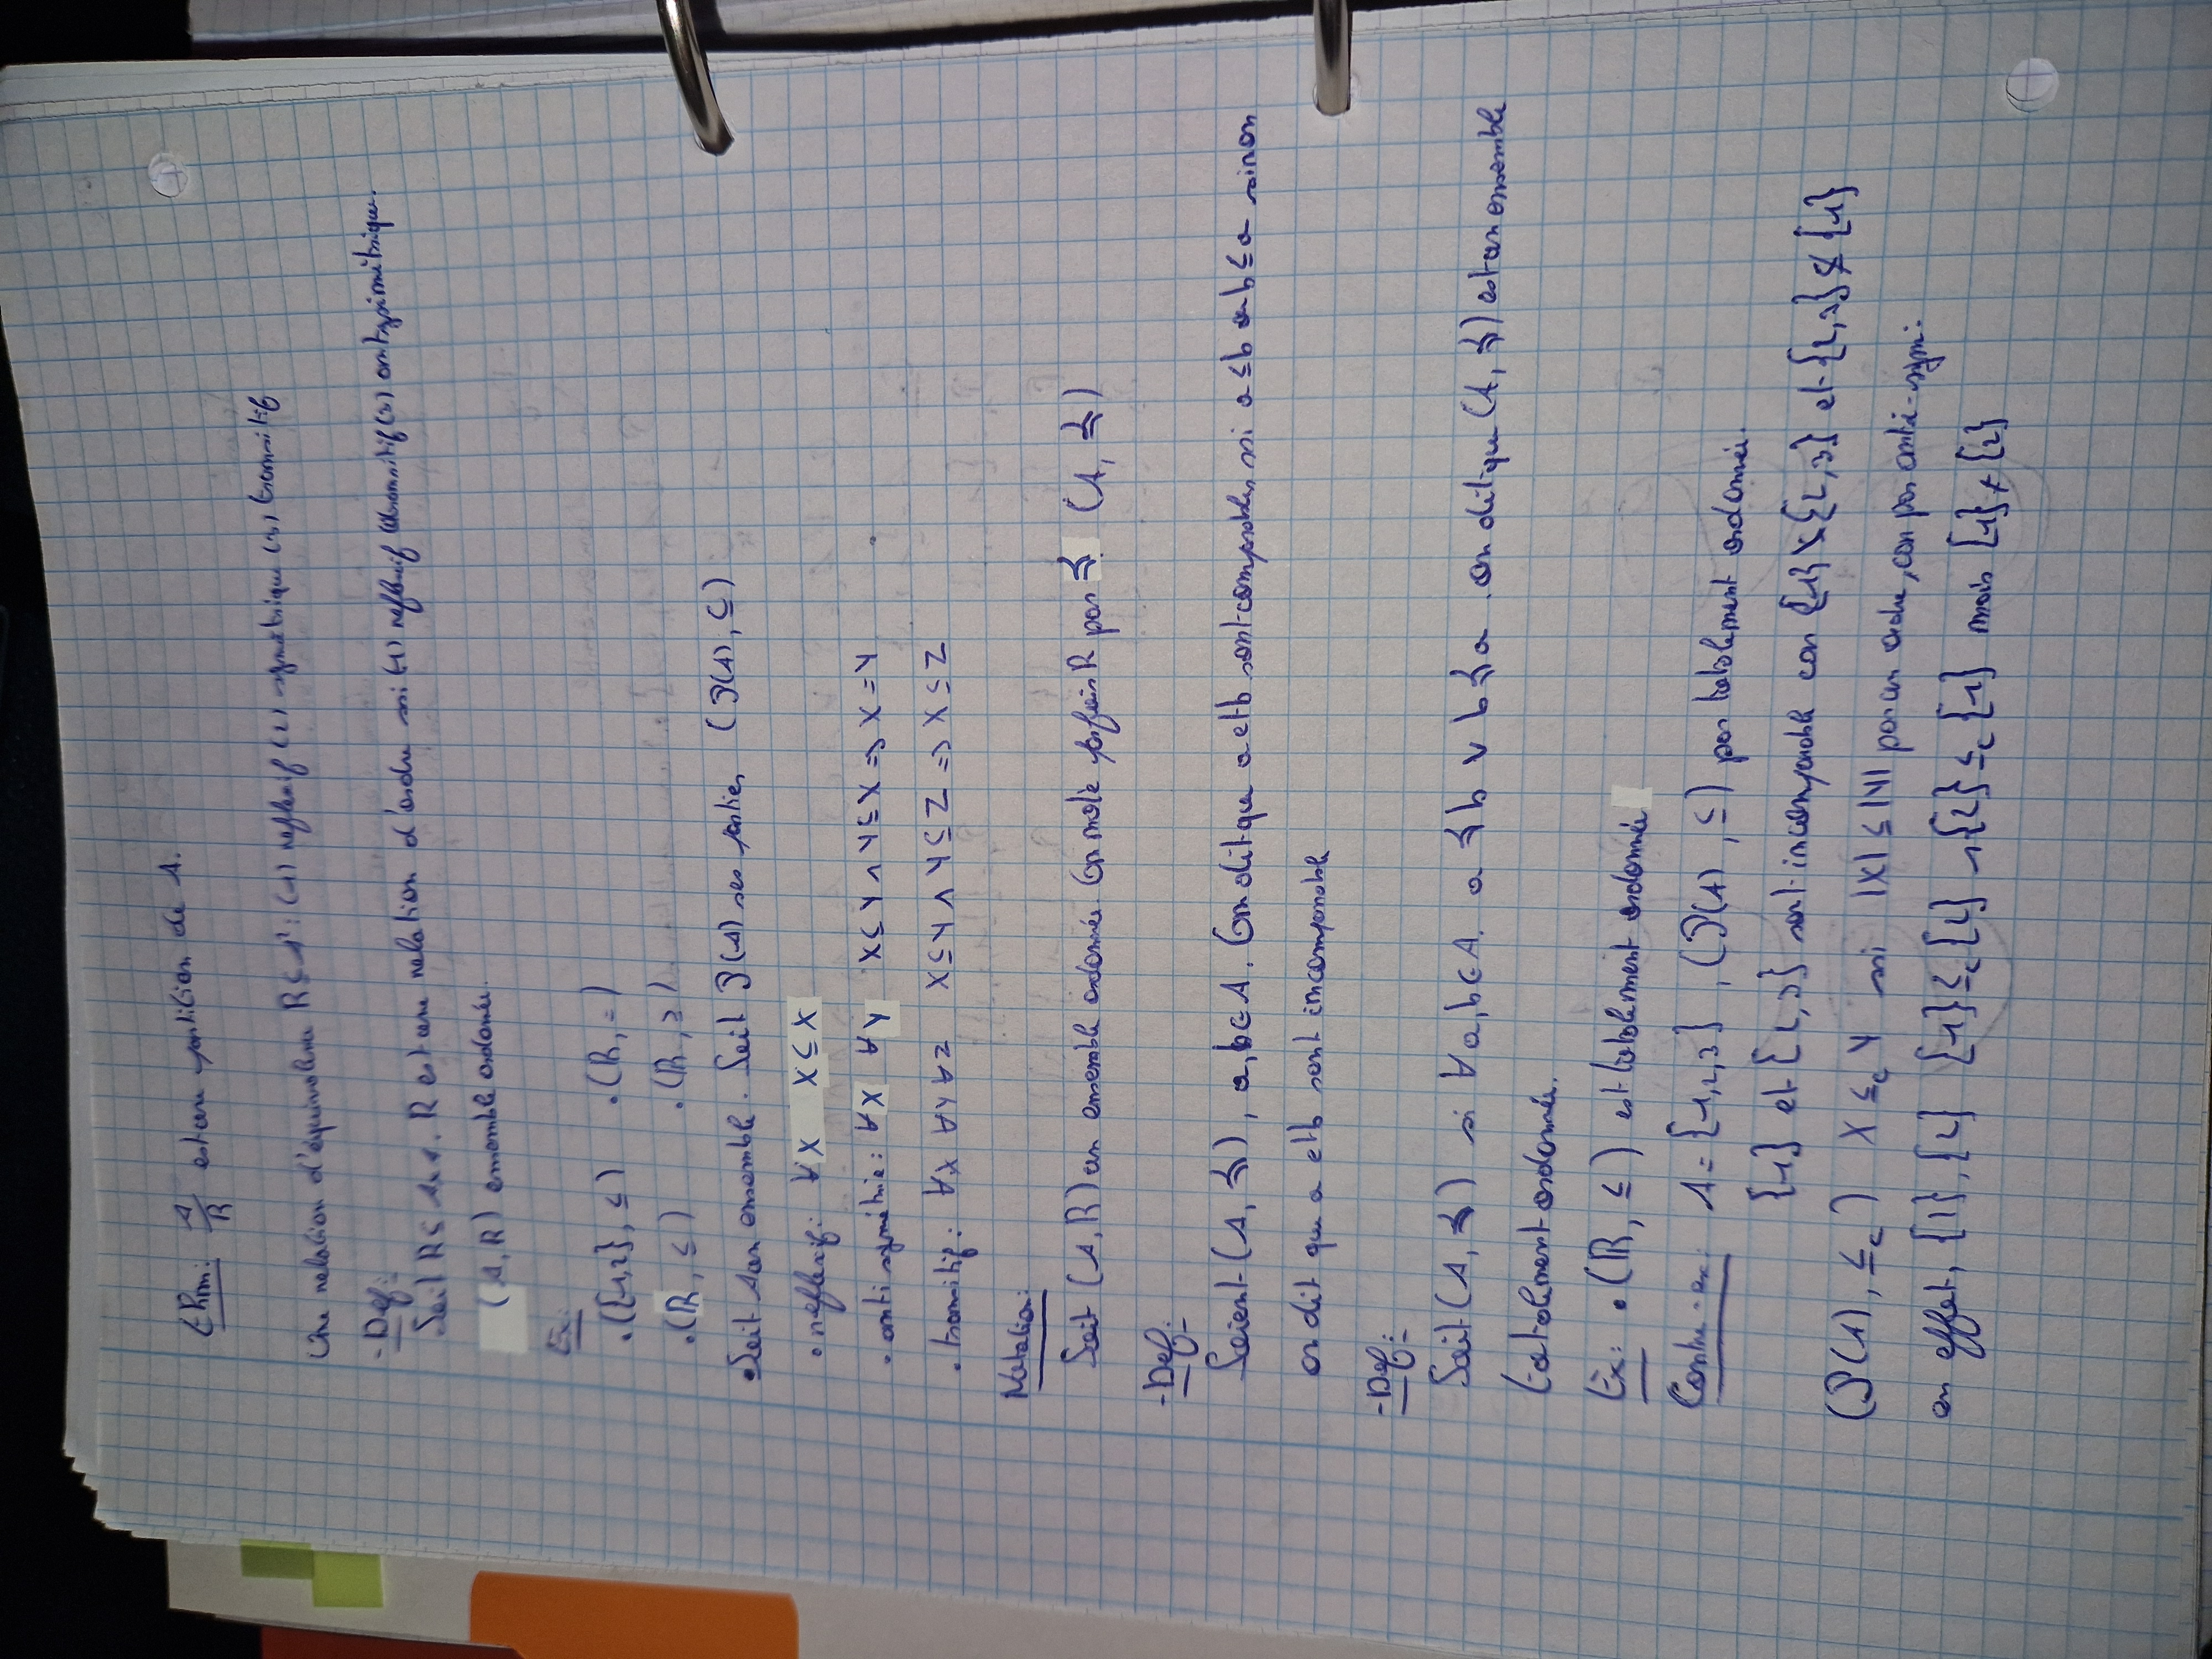 thm: A/R est une partition de A.
Une relation d'équivalence R ⊆ A²: (1) reflexif (2) symétrique (3) transitif
- Def:
Soit R ⊆ A×A. R est une relation d'ordre ssi (1) reflexif (2) transitif (3) antisymétrique.
(A, R) ensemble ordonnée.
Ex:
• ({1,2}, ≤) • (ℝ, =)
• (ℝ, ≤) • (ℝ, ≥)
• Soit A un ensemble. Soit P(A) ses parties (P(A), ⊆)
• reflexif: ∀X X ⊆ X
• anti symétrie: ∀X ∀Y X ⊆ Y ∧ Y ⊆ X => X = Y
• transitif: ∀X ∀Y ∀Z X ⊆ Y ∧ Y ⊆ Z => X ⊆ Z
Notation:
Soit (A, R) un ensemble ordonnée. On note parfois R par ≼. (A, ≼)
- Def:
Soient (A, ≼), a, b ∈ A. On dit que a et b sont comparables ssi a ≤ b ou b ≤ a sinon
on dit que a et b sont incomparable
- Def:
Soit (A, ≼) si ∀a, b ∈ A. a ≼ b ∨ b ≼ a. on dit que (A, ≼) est un ensemble
totalement ordonnée.
Ex: • (ℝ, ≤) est totalement ordonnée
Contre-ex: A = {1,2,3}, (P(A), ⊆) pas totalement ordonnée.
{1} et {2,3} sont incomparable car {1} ⊈ {2,3} et {2,3} ⊈ {1}
(P(A), ≤c) X ≤c Y ssi |X| ≤ |Y| pas un ordre, car pas anti-sym:
en effet, {1}, {2} {1} ≤c {2} ∧ {2} ≤c {1} mais {1} ≠ {2}